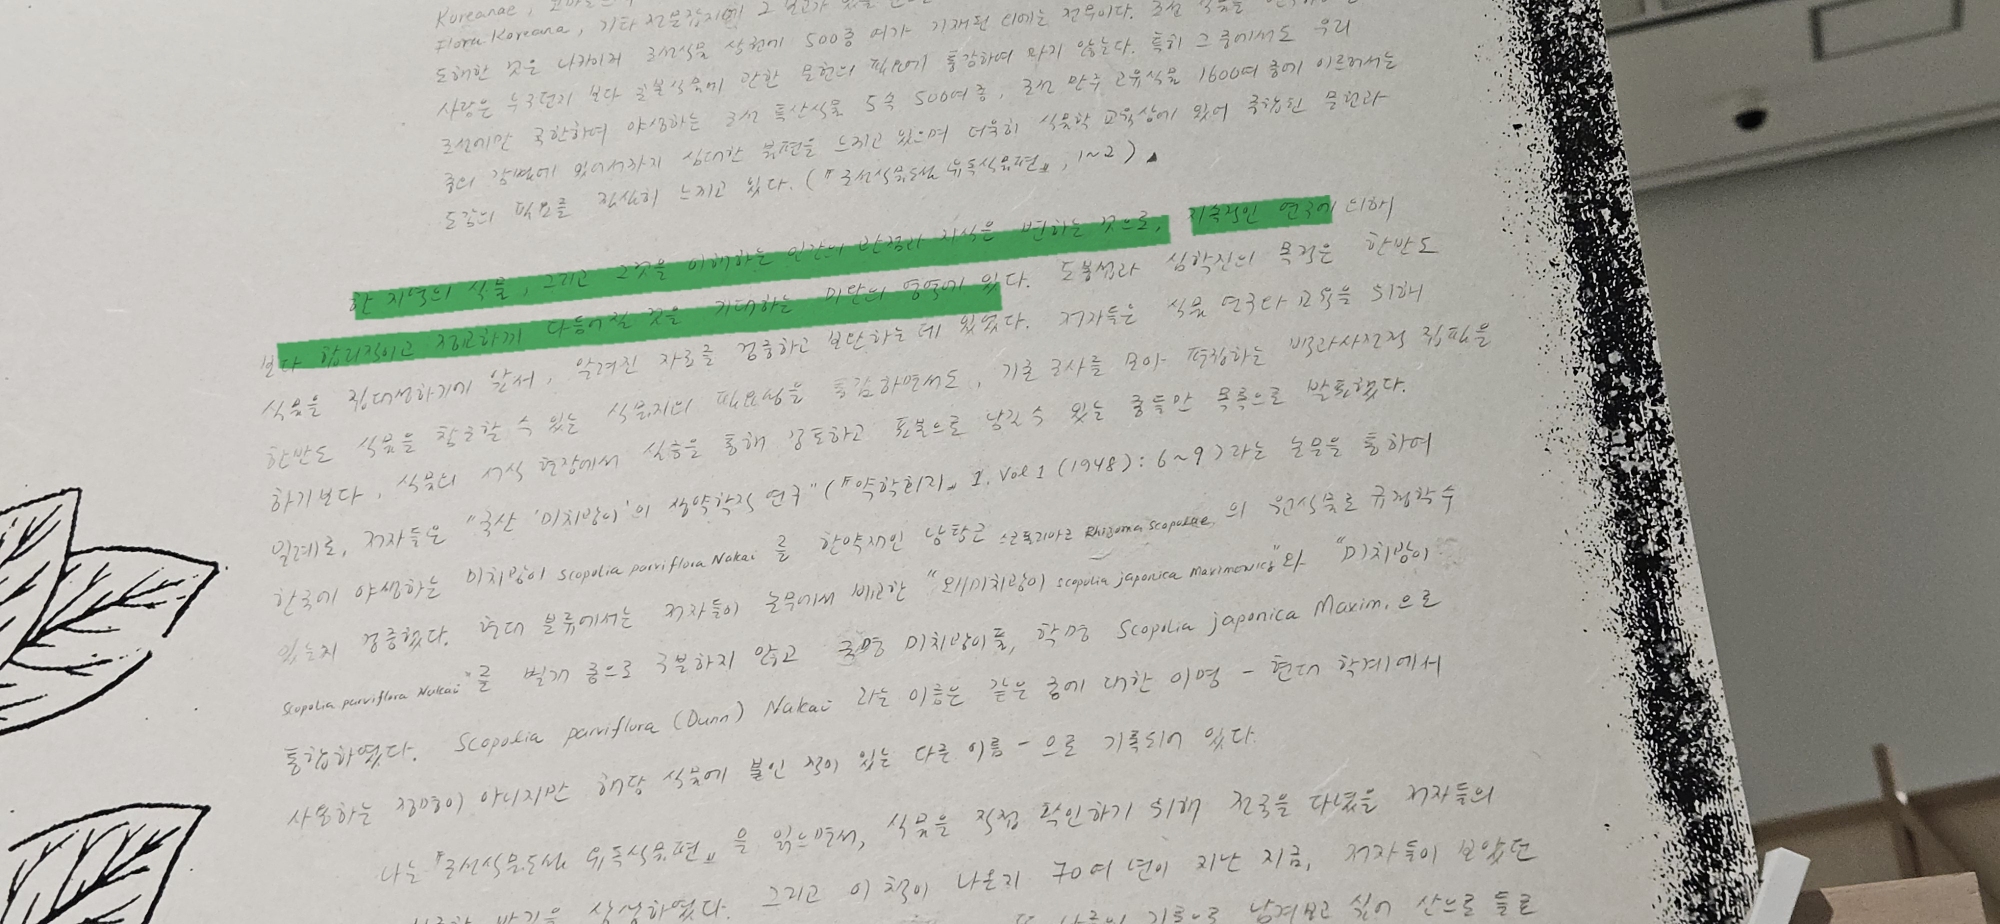 Koreanae,
Flora Koreana, 기타 전문잡지에 그 보고가 있을
도해한 것은 나카이저 조선식물 상권에 500종 여가 기재된 데에는 전무이다. 조선 식물을
사람은 누구던지 보다 일본식물에 관한 문헌의 필요에 통감하여 마지 않는다. 특히 그 중에서도 우리
조선에만 국한하여 야생하는 조선 특산식물 5속 500여 종, 조선 만주 고유식물 1600여 종에 이르러서는
종의 감별에 있어서까지 심대한 불편을 느끼고 있으며 더욱히 식물학 교육상에 있어 종합된 문헌과
도감의 필요를 절실히 느끼고 있다. (『조선식물도설 유독식물편』, 1~2).
한 지역의 식물, 그리고 그것을 이해하는 인간의 관점과 지식은 변하는 것으로, 지속적인 연구에 의해
보다 합리적이고 정교하게 다듬어질 것을 기대하는 미완의 영역에 있다. 도봉섭과 심학진의 목적은 한반도
식물을 집대성하기에 앞서, 알려진 자료를 검증하고 보완하는 데 있었다. 저자들은 식물 연구와 교육을 위해
한반도 식물을 참조할 수 있는 식물지의 필요성을 통감하면서도, 기존 조사를 모아 편집하는 백과사전적 집필을
하기보다, 식물의 서식 현장에서 실증을 통해 검토하고 표본으로 남길 수 있는 종들만 목록으로 발표했다.
일례로, 저자들은 "국산 '미치광이'의 생약학적 연구" (『약학회지』 1. Vol 1 (1948): 6~9)라는 논문을 통하여
한국에 야생하는 미치광이 Scopolia parviflora Nakai 를 한약재인 낭탕근 스코폴리아근 Rhizoma Scopoliae, 의 원식물로 규정할 수
있는지 검증했다. 현대 분류에서는 저자들이 논문에서 비교한 "왜미치광이 scopolia japonica Maximowicz"와 "미치광이
Scopolia parviflora Nakai"를 별개 종으로 구분하지 않고 국명 미치광이풀, 학명 Scopolia japonica Maxim. 으로
통합하였다. Scopolia parviflora (Dunn) Nakai 라는 이름은 같은 종에 대한 이명 - 현대 학계에서
사용하는 정명이 아니지만 해당 식물에 붙인 적이 있는 다른 이름 - 으로 기록되어 있다.
나는 『조선식물도설 유독식물편』 을 읽으면서, 식물을 직접 확인하기 위해 전국을 다녔을 저자들의
상상하였다. 그리고 이 책이 나온지 70여 년이 지난 지금, 저자들이 보았던
기록으로 남겨보고 싶어 산으로 들로